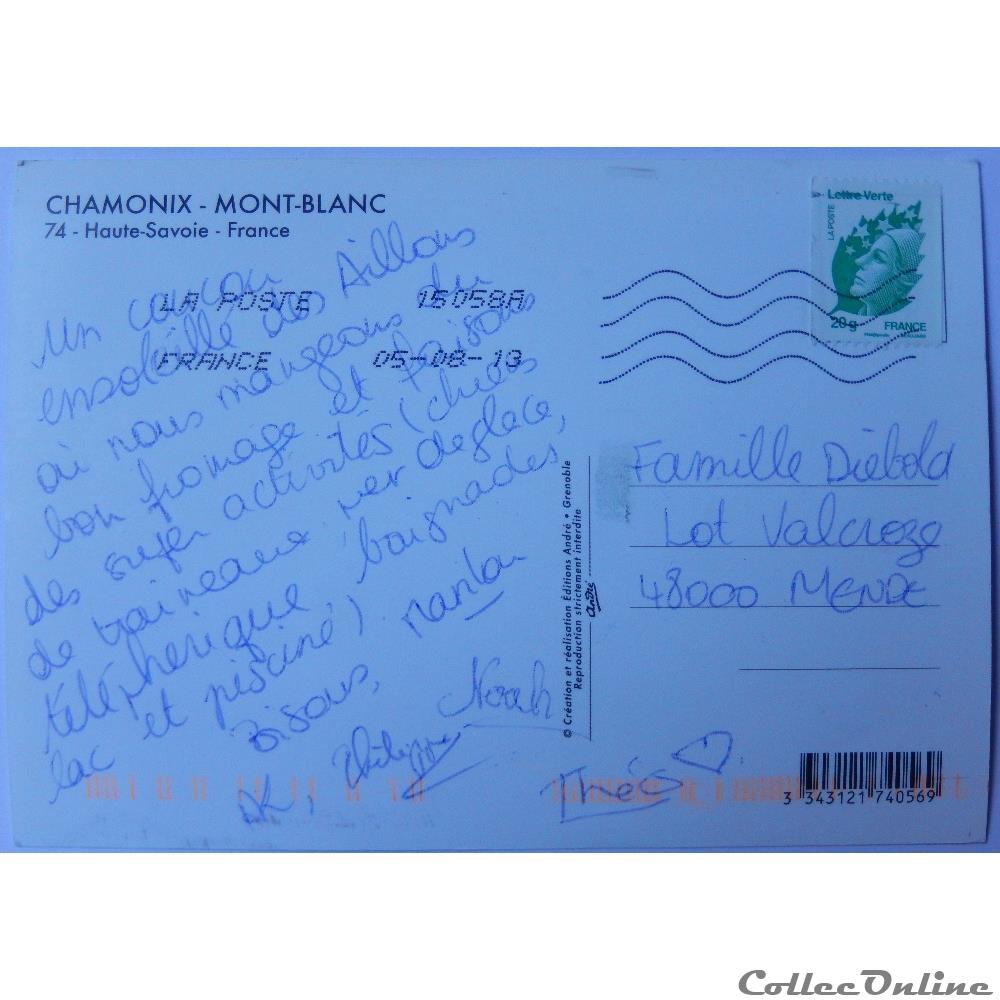 CHAMONIX - MONT-BLANC
74 - Haute-Savoie - France
Lettre Verte
LA POSTE
20g FRANCE
LA POSTE 15058A
FRANCE 05-08-13
Un coucou
ensoleillé des Aillons
où nous mangeons du
bon fromage et faisons
des super activités (chiens
de traineaux, ver de glace,
téléphérique, baignades
lac et piscine).
Bisous, Manlou
Philippe Noah
Inès
Famille Diébold
Lot Valcroze
48000 MENDE
© Création et réalisation Éditions André • Grenoble
Reproduction strictement interdite
André
3 343121 740569
CollecOnline